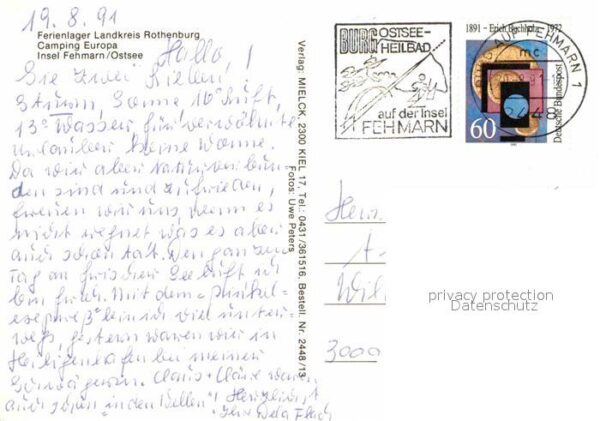 19.8.91
Ferienlager Landkreis Rothenburg
Camping Europa
Insel Fehmarn/Ostsee
Hallo,
Sie zwei Lieben,
Sturm, Sonne 16° Luft,
13° Wasser, für verwöhnte
Urlauber keine Wonne.
Da wir aber Naturverbun-
den sind und zufrieden,
freuen wir uns wenn es
nicht regnet was es aber
auch schon tat. Den ganzen
Tag an frischer Seeluft
Mit dem
sind wir viel unter-
wegs, gestern waren wir in
Heiligenhafen bei meiner
Claus + waren
auch schon "in den Wellen"! Herzlichst
Ihre
Verlag: MIELCK, 2300 KIEL 17, Tel.: 0431/361516, Bestell. Nr. 2448/13
Fotos: Uwe Peters
BURG OSTSEE-
HEILBAD
auf der Insel
FEHMARN
1891 - Erich Buchholz - 1972
60
Deutsche Bundespost
BURG AUF FEHMARN 1
mc
2448
Herrn
Wil
3000
privacy protection
Datenschutz